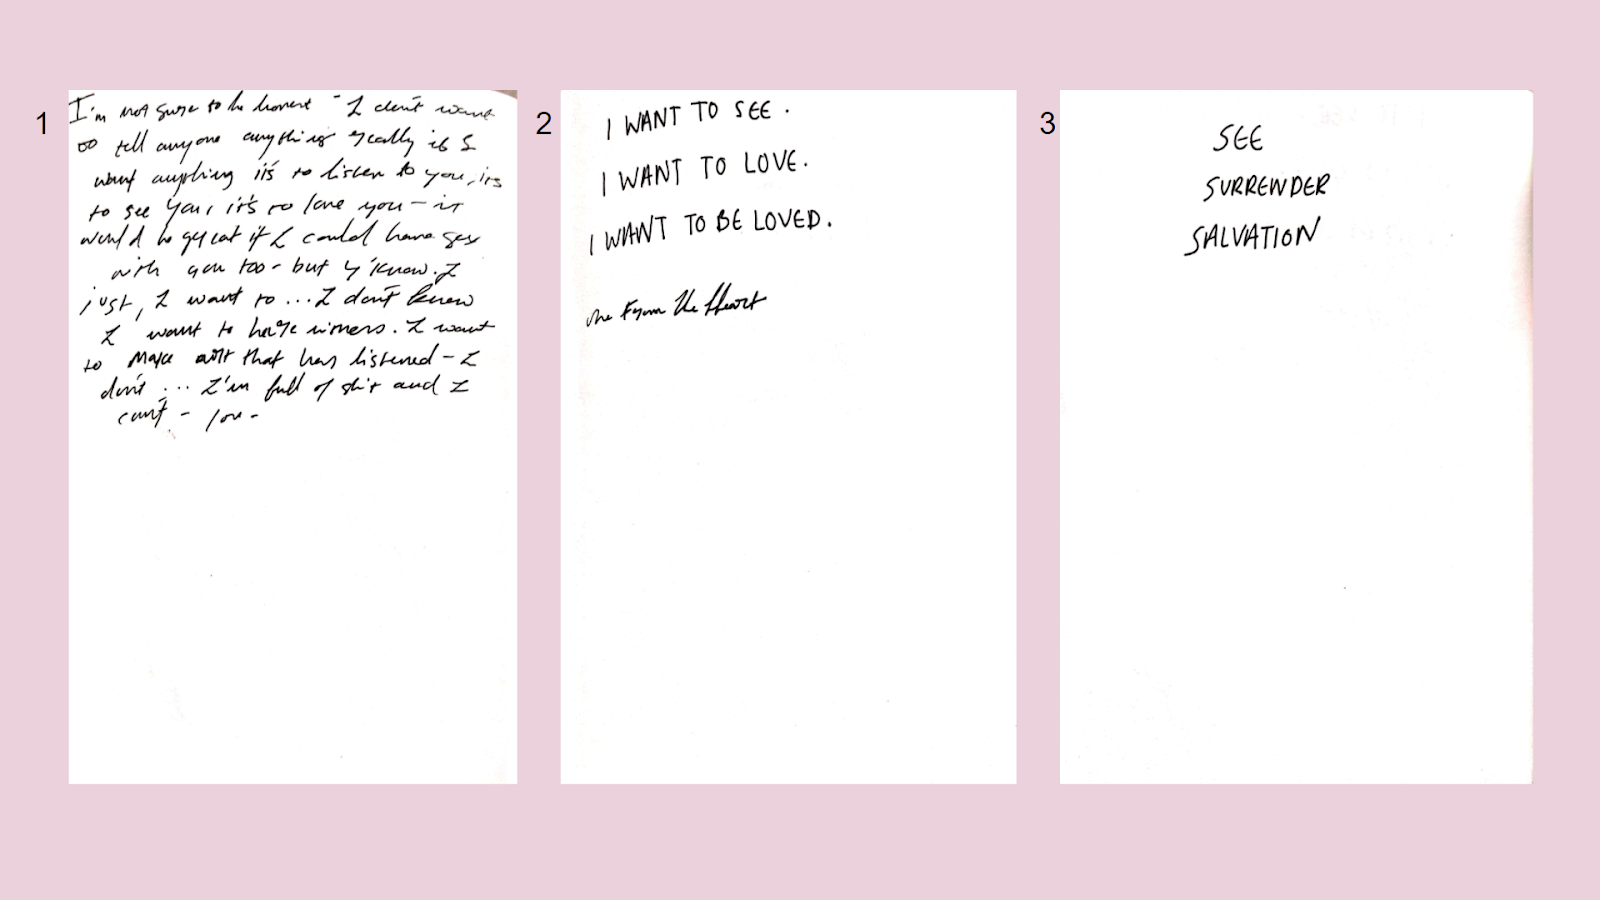 1
I'm not sure to be honest - I don't want
to tell anyone anything really if I
want anything it's to listen to you, it's
to see you, it's to love you - it
would be great if I could have sex
with you too - but y'know. I
just, I want to ... I don't know
I want to have
. I want
to make art that has listened - I
don't ... I'm full of shit and I
can't - you -
2
I WANT TO SEE.
I WANT TO LOVE.
I WANT TO BE LOVED.
One From The Heart
3
SEE
SURRENDER
SALVATION